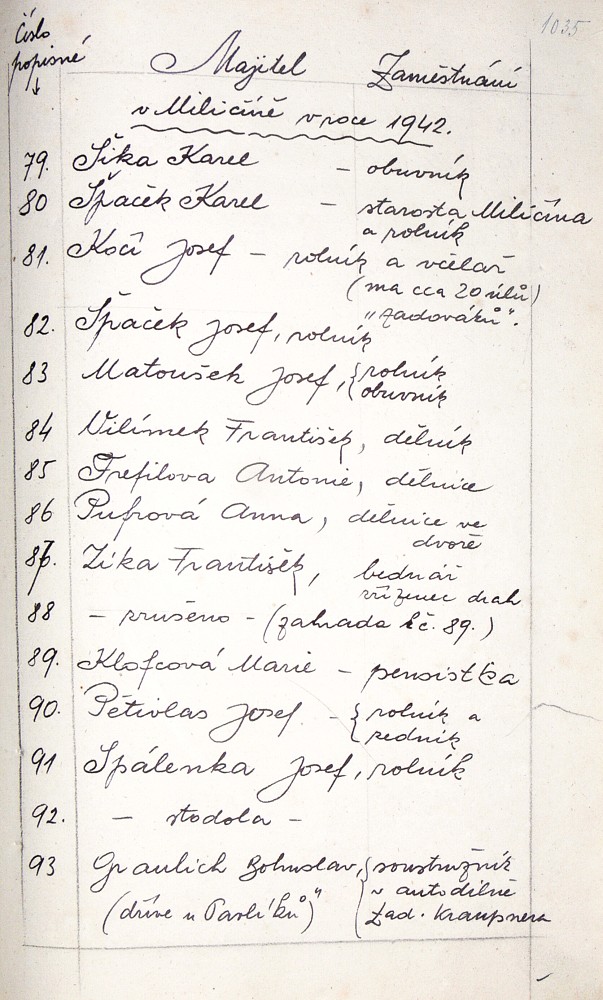 1035
Číslo
popisné
↓
Majitel Zaměstnání
v Miličíně v roce 1942.
79. Šika Karel – obuvník
80 Špaček Karel – starosta Miličína
a rolník
81. Kočí Josef – rolník a včelař
(ma cca 20 úlů)
"Zadováků".
82. Špaček Josef, rolník
83 Matoušek Josef, { rolník
obuvník
84 Vilímek František, dělník
85 Trefilova Antonie, dělnice
86 Pufrová Anna, dělnice ve
dvoře
87. Zíka František, bednář
zřízenec drah
88 – zrušeno – (zahrada k č. 89.)
89. Klofcová Marie – pensistka
90. Pětivlas Josef – { rolník a
zedník
91 Spálenka Josef, rolník
92. – stodola –
93 Graulich Bohuslav, { soustružník
(dříve u Pavlíků)" v autodílně
Lad. Kraupnera